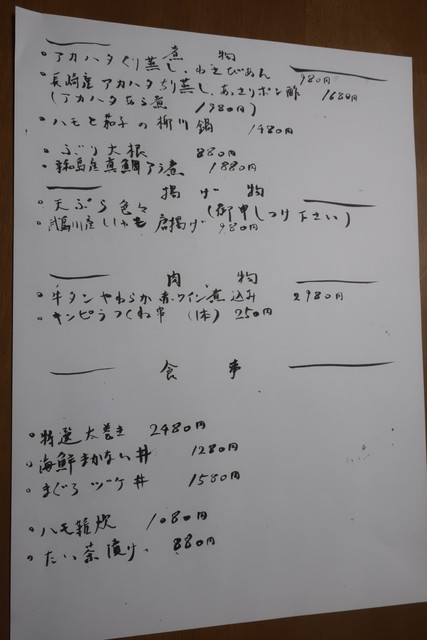 煮物
・アカハタぐり蒸し、わさびあん 980円
・長崎産アカハタちり蒸し、あっさりポン酢 1680円
(アカハタあら煮 1980円)
・ハモと茄子の柳川鍋 1480円
・ぶり大根 880円
・真鯛アラ煮 1880円
揚げ物
・天ぷら色々 (御申しつけ下さい)
・川産 唐揚げ 980円
肉物
・牛タンやわらか赤ワイン煮込み 2980円
・キンピラつくね串 (1本) 250円
食事
・特選太巻き 2480円
・海鮮まかない丼 1280円
・まぐろヅケ丼 1580円
・ハモ雑炊 1080円
・たい茶漬け 880円